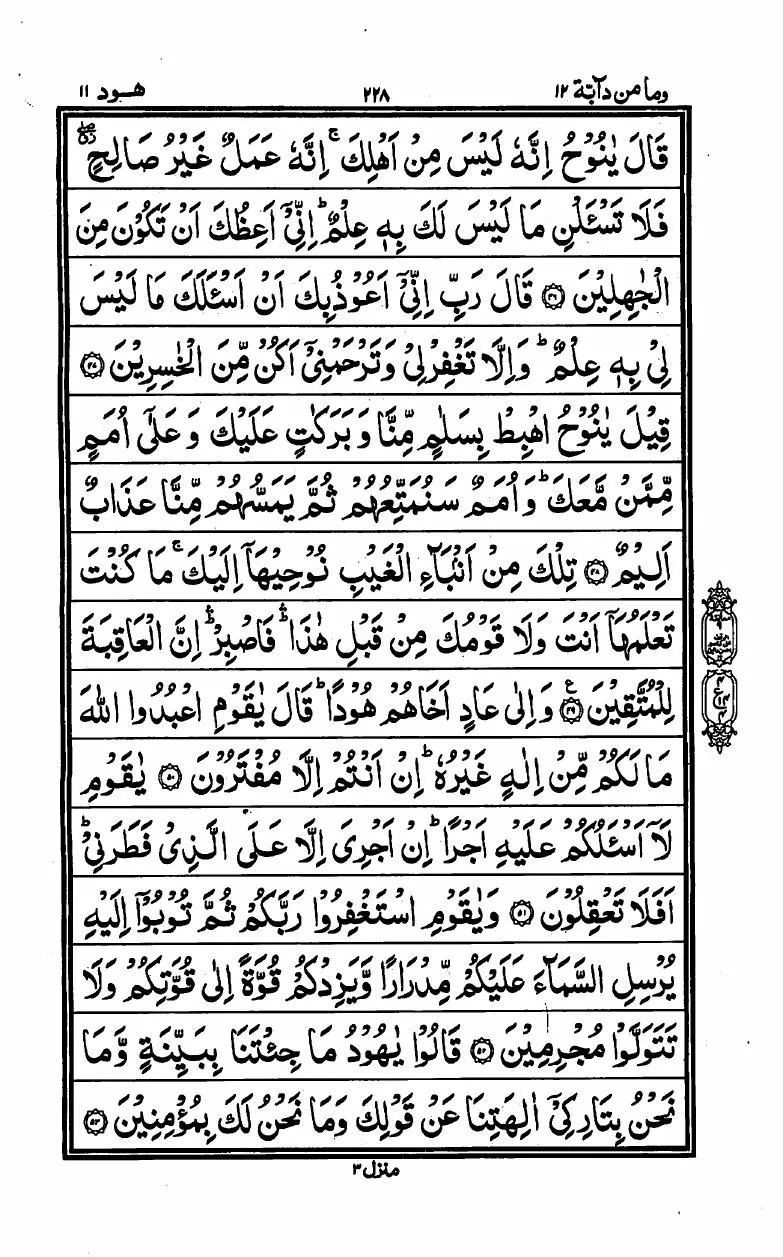 وما من دآبة ١٢ ٢٢٨ هود ١١
قَالَ يٰنُوْحُ اِنَّهٗ لَيْسَ مِنْ اَهْلِكَ ۚ اِنَّهٗ عَمَلٌ غَيْرُ صَالِحٍ
فَلَا تَسْـَٔلْنِ مَا لَيْسَ لَكَ بِهٖ عِلْمٌ ؕ اِنِّىْٓ اَعِظُكَ اَنْ تَكُوْنَ مِنَ
الْجٰهِلِيْنَ ۝۴۶ قَالَ رَبِّ اِنِّىْٓ اَعُوْذُ بِكَ اَنْ اَسْـَٔلَكَ مَا لَيْسَ
لِىْ بِهٖ عِلْمٌ ؕ وَاِلَّا تَغْفِرْ لِىْ وَتَرْحَمْنِىْٓ اَكُنْ مِّنَ الْخٰسِرِيْنَ ۝۴۷
قِيْلَ يٰنُوْحُ اهْبِطْ بِسَلٰمٍ مِّنَّا وَبَرَكٰتٍ عَلَيْكَ وَعَلٰٓى اُمَمٍ
مِّمَّنْ مَّعَكَ ؕ وَاُمَمٌ سَنُمَتِّعُهُمْ ثُمَّ يَمَسُّهُمْ مِّنَّا عَذَابٌ
اَلِيْمٌ ۝۴۸ تِلْكَ مِنْ اَنْۢبَآءِ الْغَيْبِ نُوْحِيْهَآ اِلَيْكَ ۚ مَا كُنْتَ
تَعْلَمُهَآ اَنْتَ وَلَا قَوْمُكَ مِنْ قَبْلِ هٰذَا ۛؕ فَاصْبِرْ ۛؕ اِنَّ الْعَاقِبَةَ
لِلْمُتَّقِيْنَ ۝۴۹ ع وَاِلٰى عَادٍ اَخَاهُمْ هُوْدًا ؕ قَالَ يٰقَوْمِ اعْبُدُوا اللّٰهَ
مَا لَكُمْ مِّنْ اِلٰهٍ غَيْرُهٗ ؕ اِنْ اَنْتُمْ اِلَّا مُفْتَرُوْنَ ۝۵۰ يٰقَوْمِ
لَآ اَسْـَٔلُكُمْ عَلَيْهِ اَجْرًا ؕ اِنْ اَجْرِىَ اِلَّا عَلَى الَّذِىْ فَطَرَنِىْ ؕ
اَفَلَا تَعْقِلُوْنَ ۝۵۱ وَيٰقَوْمِ اسْتَغْفِرُوْا رَبَّكُمْ ثُمَّ تُوْبُوْٓا اِلَيْهِ
يُرْسِلِ السَّمَآءَ عَلَيْكُمْ مِّدْرَارًا وَّيَزِدْكُمْ قُوَّةً اِلٰى قُوَّتِكُمْ وَلَا
تَتَوَلَّوْا مُجْرِمِيْنَ ۝۵۲ قَالُوْا يٰهُوْدُ مَا جِئْتَنَا بِبَيِّنَةٍ وَّمَا
نَحْنُ بِتَارِكِىْٓ اٰلِهَتِنَا عَنْ قَوْلِكَ وَمَا نَحْنُ لَكَ بِمُؤْمِنِيْنَ ۝۵۳
منزل ٣